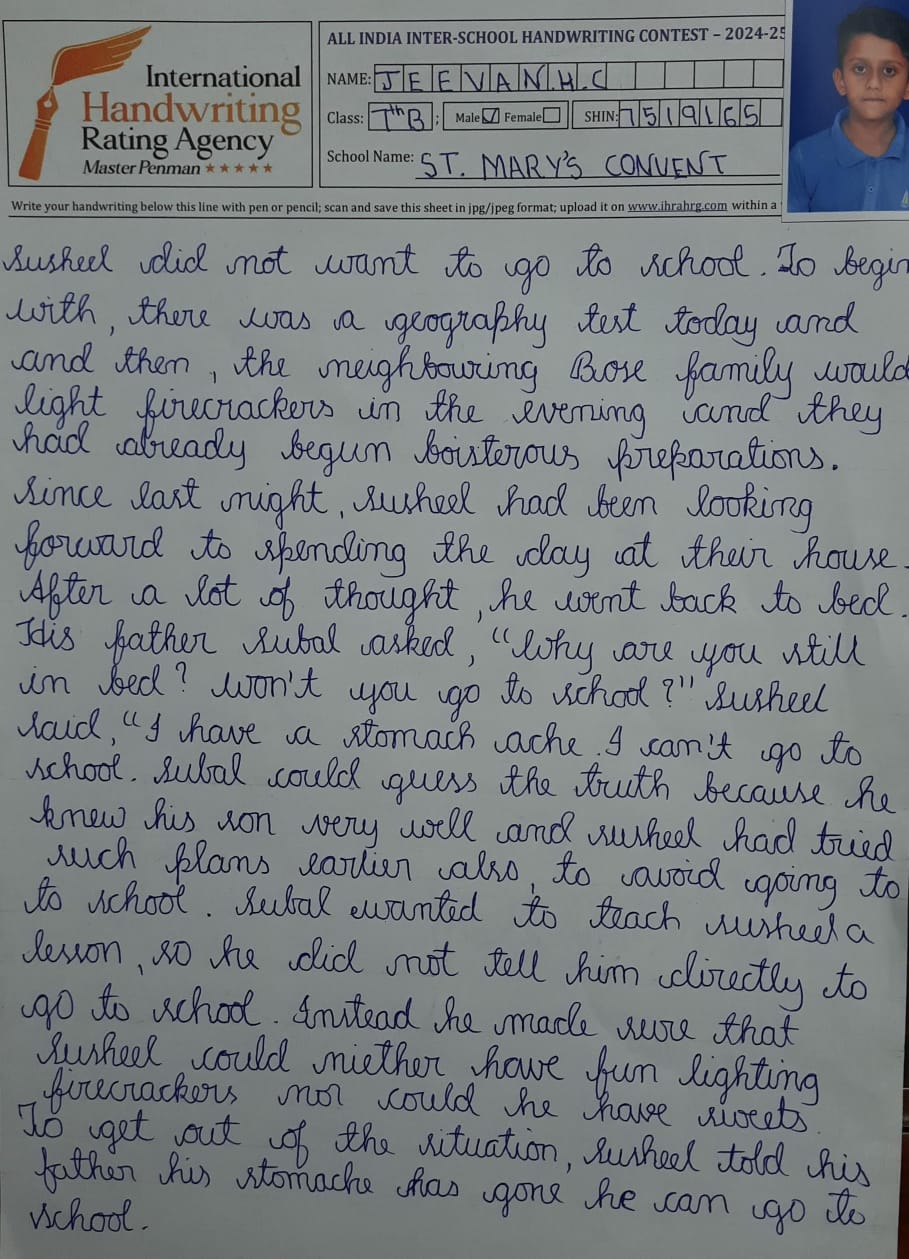 International
Handwriting
Rating Agency
Master Penman
ALL INDIA INTER-SCHOOL HANDWRITING CONTEST – 2024-25
NAME: JEEVAN.H.C
Class: 7th B ; Male Female SHIN: 7519165
School Name: ST. MARY'S CONVENT
Write your handwriting below this line with pen or pencil; scan and save this sheet in jpg/jpeg format; upload it on www.ihrahrg.com within a
Susheel did not want to go to school. To begin
with, there was a geography test today and
and then, the neighbouring Bose family would
light firecrackers in the evening and they
had already begun boisterous preparations.
Since last night, Susheel had been looking
forward to spending the day at their house.
After a lot of thought, he went back to bed.
His father Subal asked, "Why are you still
in bed? Won't you go to school?" Susheel
said, "I have a stomach ache. I can't go to
school. Subal could guess the truth because he
knew his son very well and susheel had tried
such plans earlier also, to avoid going to
to school. Subal wanted to teach susheel a
lesson, so he did not tell him directly to
go to school. Instead he made sure that
Susheel could niether have fun lighting
firecrackers nor could he have sweets.
To get out of the situation, Susheel told his
father his stomache has gone he can go to
school.